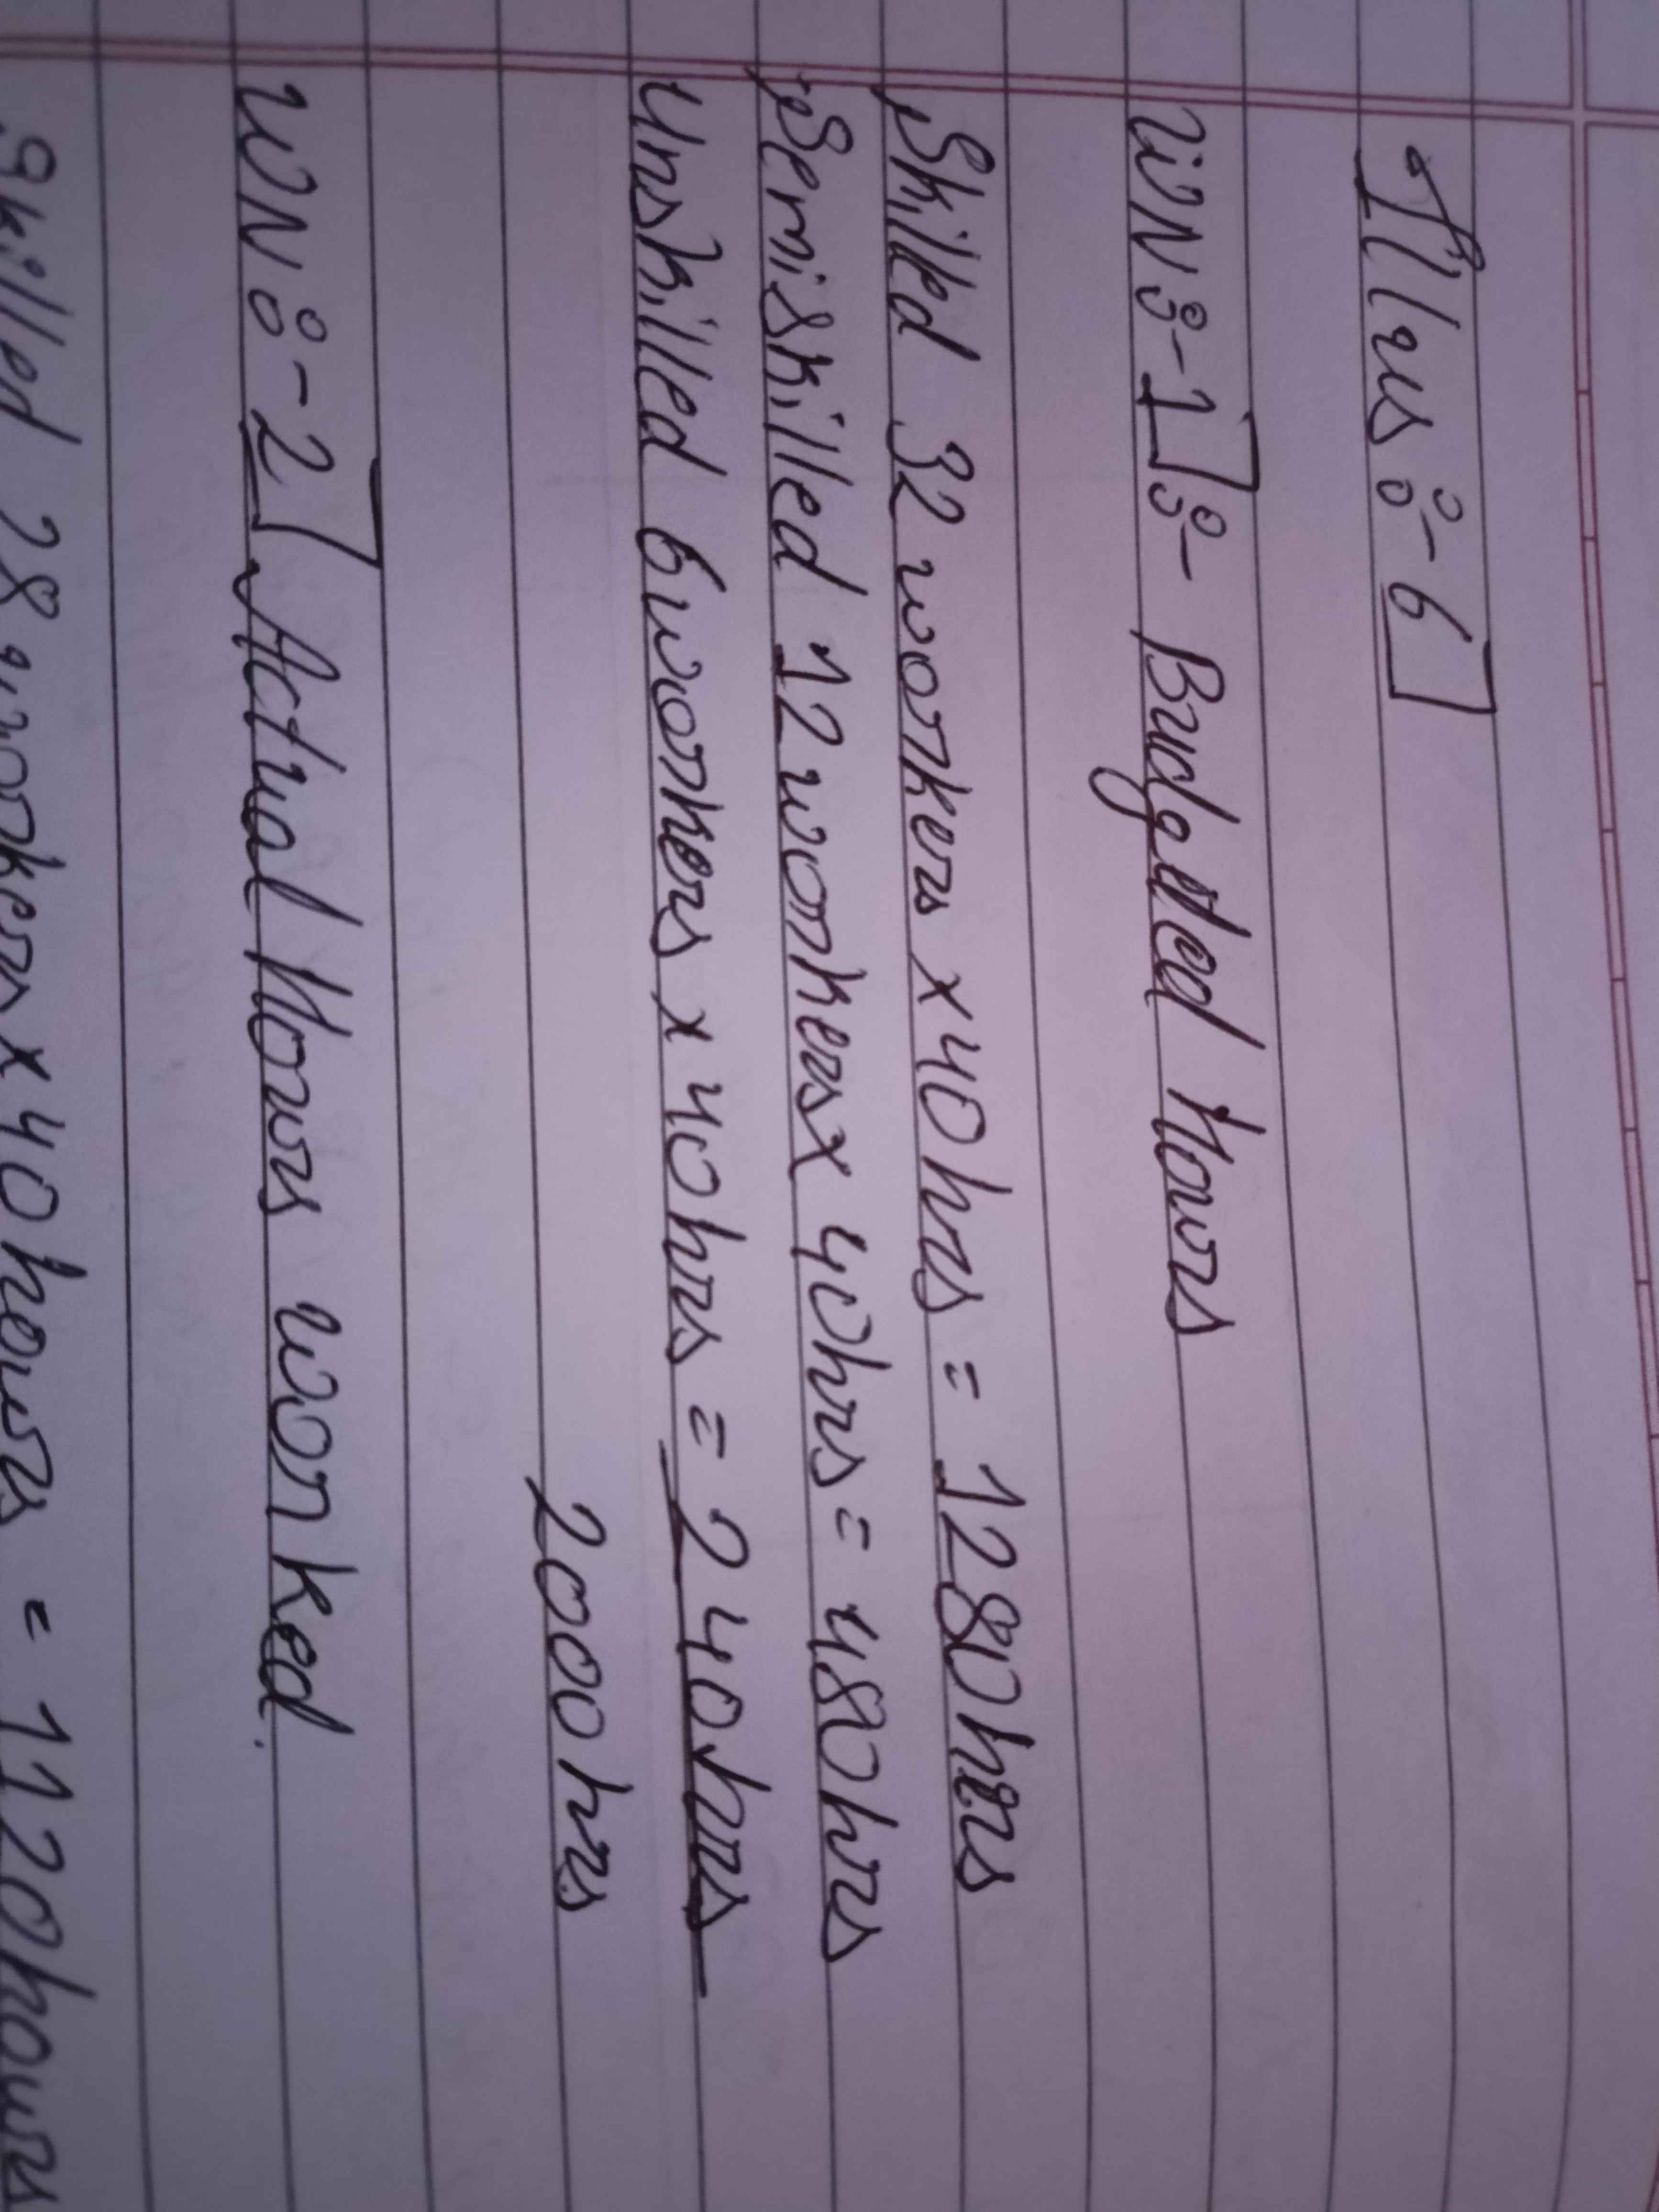 Illus :- 6
WN :- 1 :- Budgetted Hours
Skilled 32 workers x 40 hrs = 1280 hrs
Semiskilled 12 workers x 40hrs = 480 hrs
Unskilled 6 workers x 40hrs = 240hrs
2000 hrs
WN :- 2 Actual Hours worked.
Skilled 28 workers x 40 hours = 1120 hours